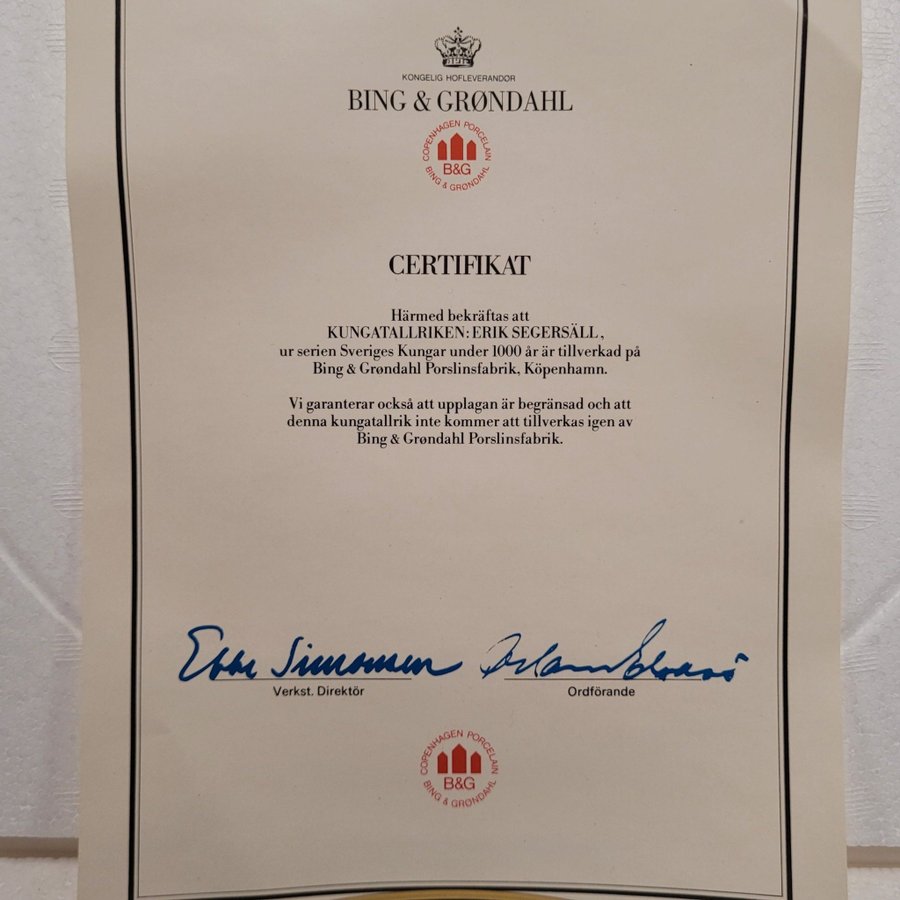 KONGELIG HOFLEVERANDØR
BING & GRØNDAHL
COPENHAGEN PORCELAIN
B&G
BING & GRØNDAHL
CERTIFIKAT
Härmed bekräftas att
KUNGATALLRIKEN: ERIK SEGERSÄLL,
ur serien Sveriges Kungar under 1000 år är tillverkad på
Bing & Grøndahl Porslinsfabrik, Köpenhamn.
Vi garanterar också att upplagan är begränsad och att
denna kungatallrik inte kommer att tillverkas igen av
Bing & Grøndahl Porslinsfabrik.
Ebbe Simonsen
Verkst. Direktör
Ordförande
COPENHAGEN PORCELAIN
B&G
BING & GRØNDAHL